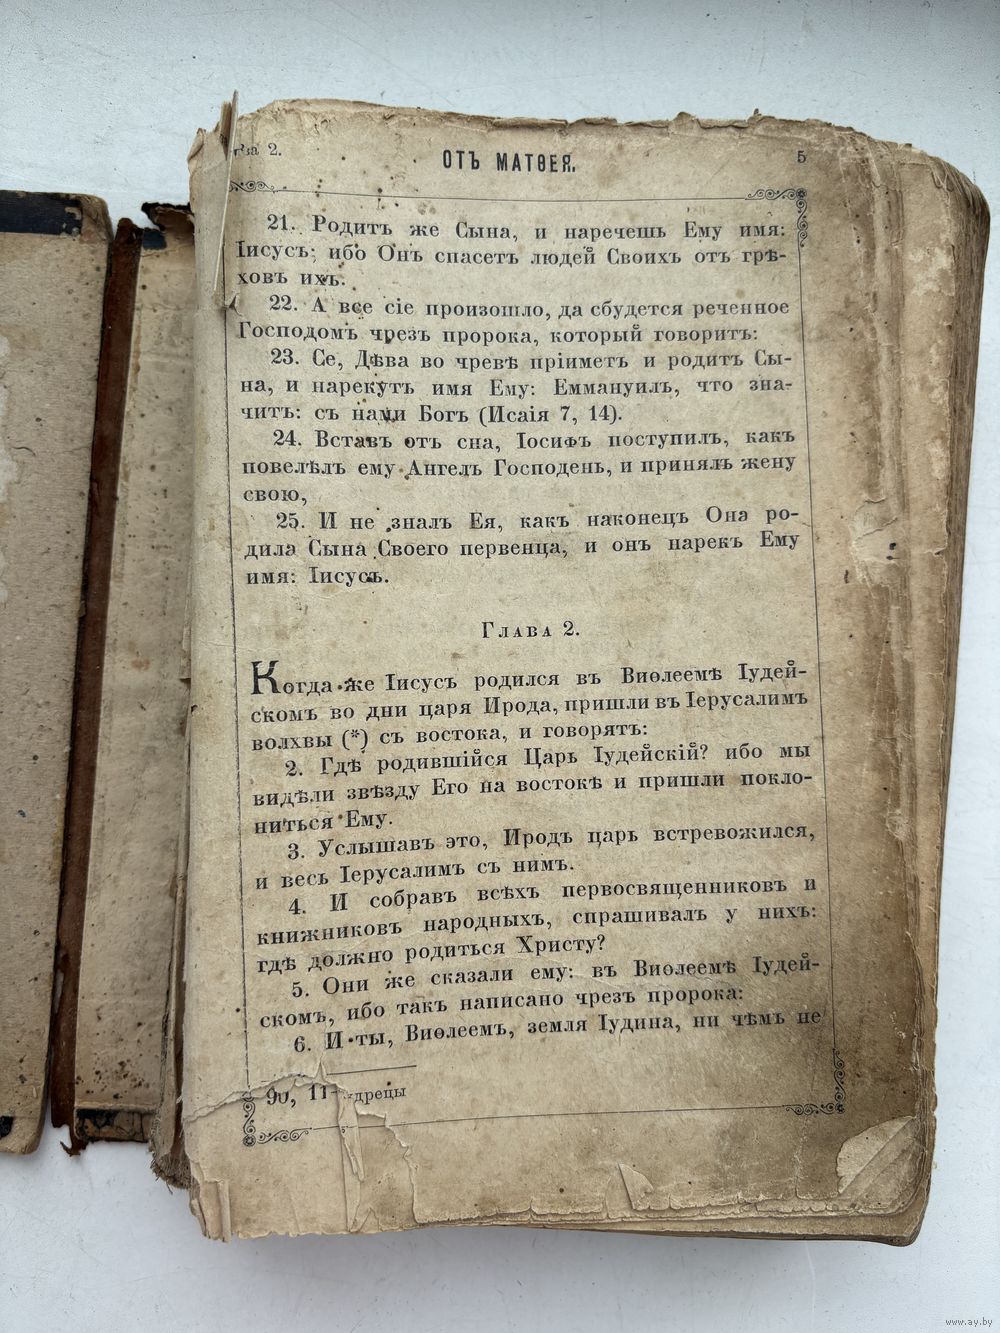 2.
ОТЪ МАТѲЕЯ.
5
21. Родитъ же Сына, и наречешь Ему имя:
Іисусъ; ибо Онъ спасетъ людей Своихъ отъ грѣ-
ховъ ихъ.
22. А все сіе произошло, да сбудется реченное
Господомъ чрезъ пророка, который говоритъ:
23. Се, Дѣва во чревѣ пріиметъ и родитъ Сы-
на, и нарекутъ имя Ему: Еммануилъ, что зна-
читъ: съ нами Богъ (Исаія 7, 14).
24. Вставъ отъ сна, Іосифъ поступилъ, какъ
повелѣлъ ему Ангелъ Господень, и принялъ жену
свою,
25. И не зналъ Ея, какъ наконецъ Она ро-
дила Сына Своего первенца, и онъ нарекъ Ему
имя: Іисусъ.
Глава 2.
Когда же Іисусъ родился въ Виѳлеемѣ Іудей-
скомъ во дни царя Ирода, пришли въ Іерусалимъ
волхвы (*) съ востока, и говорятъ:
2. Гдѣ родившійся Царь Іудейскій? ибо мы
видѣли звѣзду Его на востокѣ и пришли покло-
ниться Ему.
3. Услышавъ это, Иродъ царь встревожился,
и весь Іерусалимъ съ нимъ.
4. И собравъ всѣхъ первосвященниковъ и
книжниковъ народныхъ, спрашивалъ у нихъ:
гдѣ должно родиться Христу?
5. Они же сказали ему: въ Виѳлеемѣ Іудей-
скомъ, ибо такъ написано чрезъ пророка:
6. И ты, Виѳлеемъ, земля Іудина, ни чѣмъ не
www.ay.by